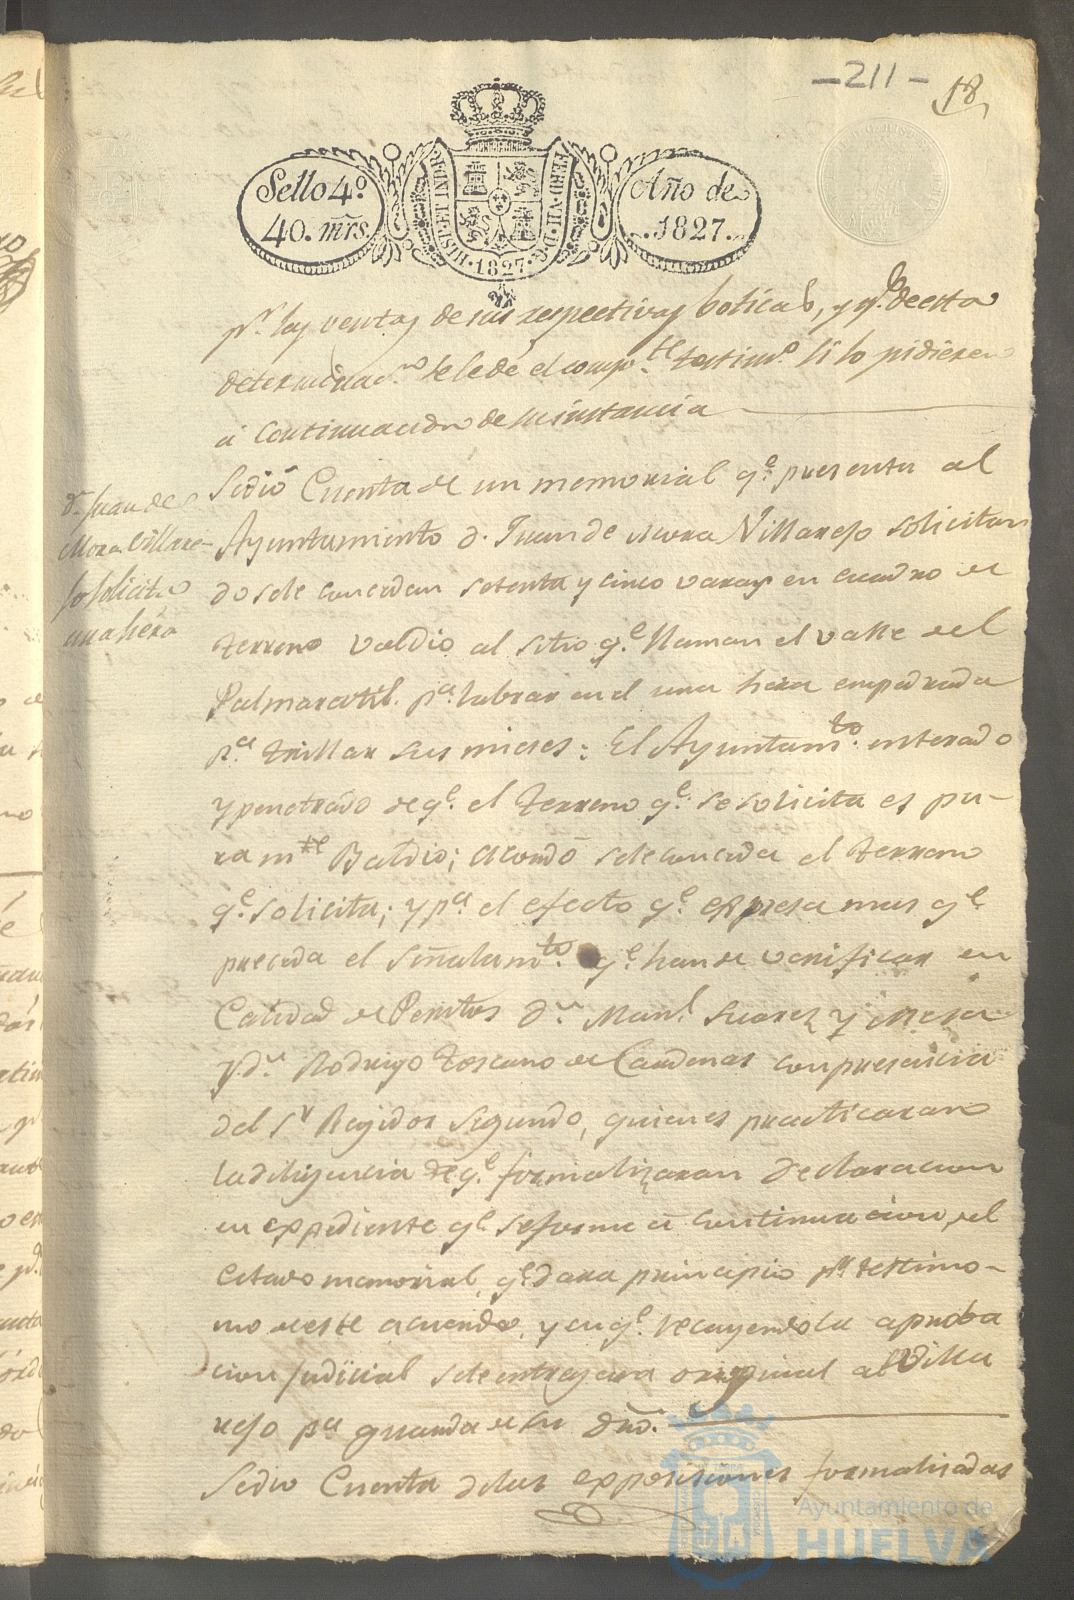 -211-
18
Sello 4º
40. mrs.
HISP. ET IND. R.
FERD. VII. D. G.
1827
Año de
1827.
pr. las ventas de sus respectivas boticas, y qe. de esta
determinacn. se le dé el compte. testimo. si lo pidieren
á continuacion de su instancia
Se dió Cuenta de un memorial qe. presenta al
Ayuntamiento d. Juan de Mora Villarejo solicitan
do se le concedan setenta y cinco varas en cuadro de
terreno valdio al sitio qe. llaman el valle del
pa. labrar en el una hera empedrada
pa. trillar sus mieses: El Ayuntamto. enterado
y penetrado de qe. el terreno qe. se solicita es pu-
ramte Baldio; acordó se le conceda el terreno
qe. solicita; y pa. el efecto qe. expresa mas qe.
preceda el señalamto. qe. han de verificar en
Calidad de Peritos Dn. Manl. Suarez y Mesa
y dn. Rodrigo Toscano de Cardenas con presencia
del Sr Regidor Segundo, quienes practicaran
la diligencia de qe. formalizaran declaracion
en expediente qe. se forme á continuacion del
Citado memorial, qe. dara principio pr. testimo-
nio de este acuerdo, y en qe. recayendo la aproba
cion judicial se le entregara original al Villa
rejo pa. guarda de su dro.
Se dio Cuenta de las exposiciones formalizadas
dn. Juan de
Mora Villare-
jo solicita
una hera
Ayuntamiento de
HUELVA